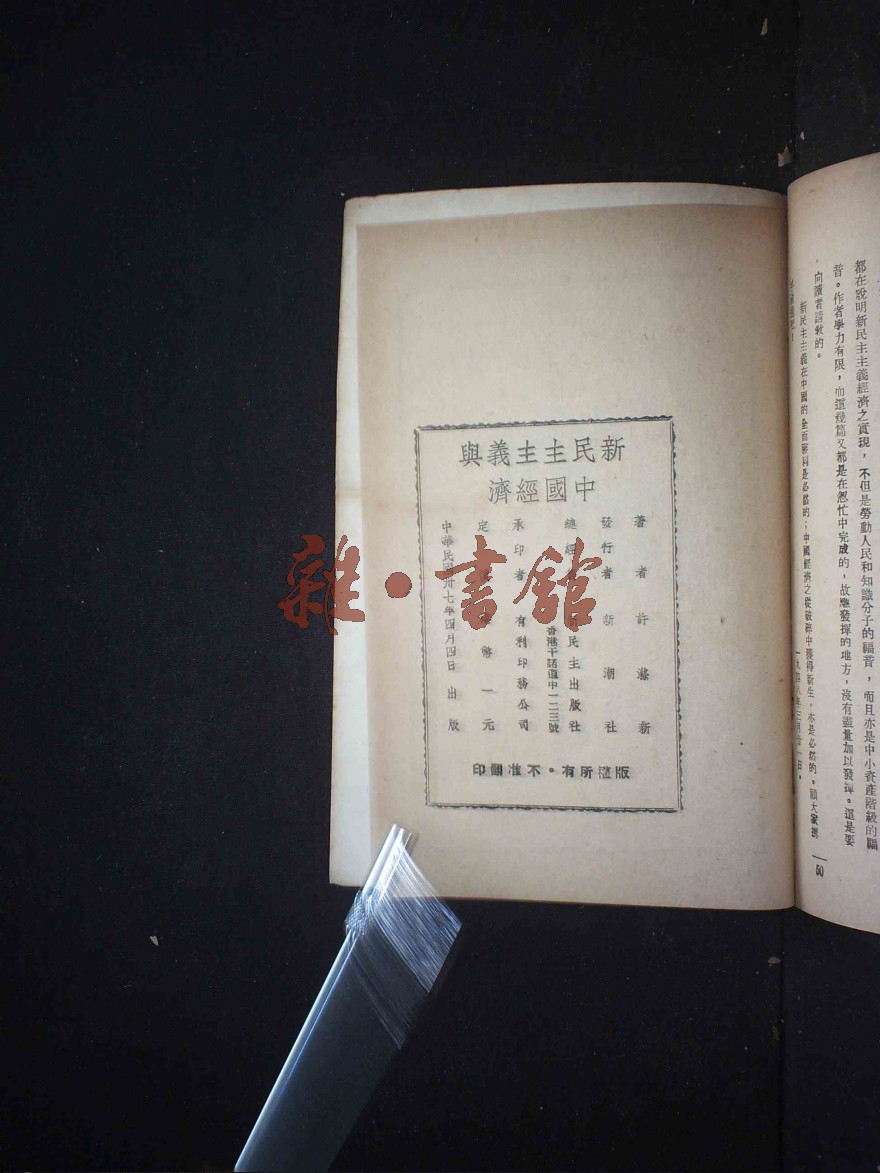 都在說明新民主主義經濟之實現，不但是勞動人民和知識分子的福音，而且亦是中小資產階級的福
音。作者學力有限，而這幾篇又都是在怱忙中完成的，故應發揮的地方，沒有盡量加以發揮。這是要
向讀者請教的。
新民主主義在中國的全面勝利是必然的；中國經濟之從破碎中獲得新生，亦是必然的。願大家
一九四八年三月廿一日。
50
新民主主義與
中國經濟
著者 許滌新
發行者 新潮社
總經 新民主出版社
香港干諾道中一二三號
承印者 有利印務公司
定 幣一元
中華民國卅七年四月四日出版
版權所有・不准翻印
雜・書館